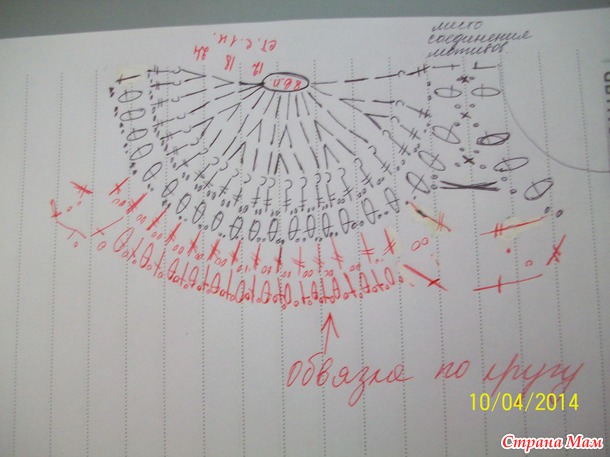 место
соединения
мотивов
ст. с. 1 н.
24
18
12
8 в.п
обвязка по кругу
10/04/2014
Страна Мам